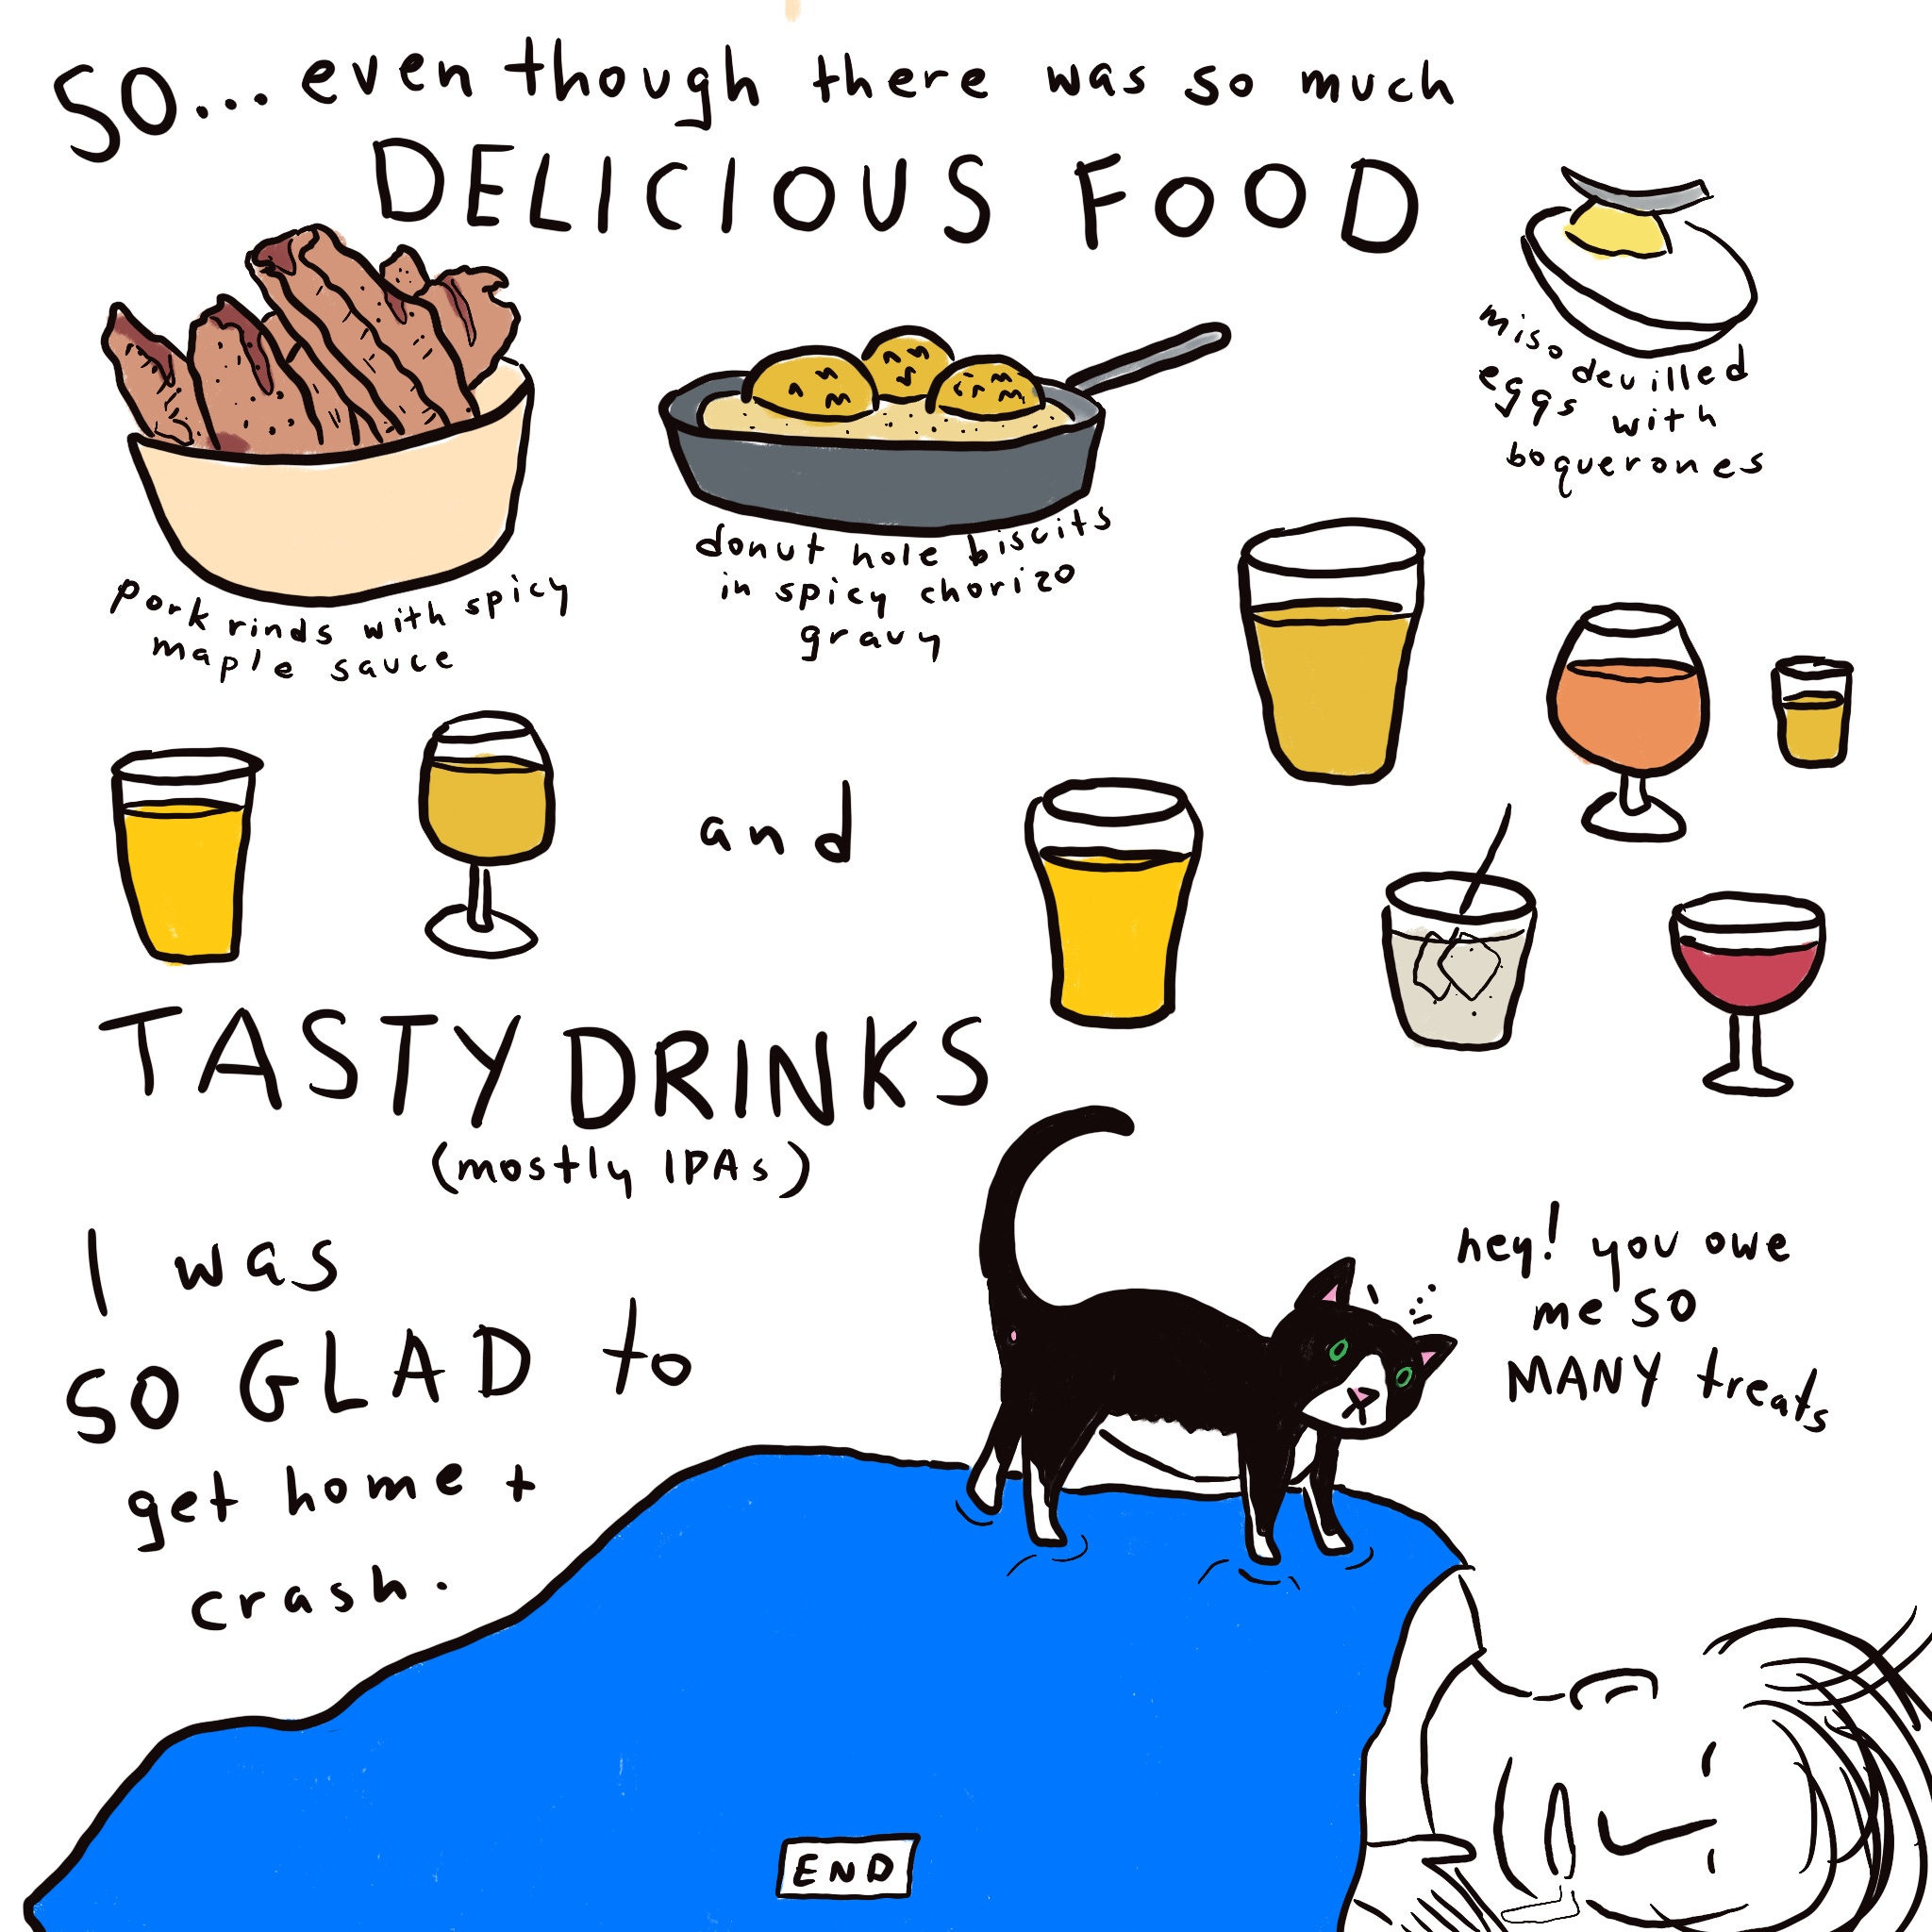 SO... even though there was so much
DELICIOUS FOOD
miso devilled
eggs with
boquerones
donut hole biscuits
in spicy chorizo
gravy
pork rinds with spicy
maple sauce
and
TASTY DRINKS
(mostly IPAs)
I was
SO GLAD to
get home +
crash.
hey! you owe
me SO
MANY treats
END